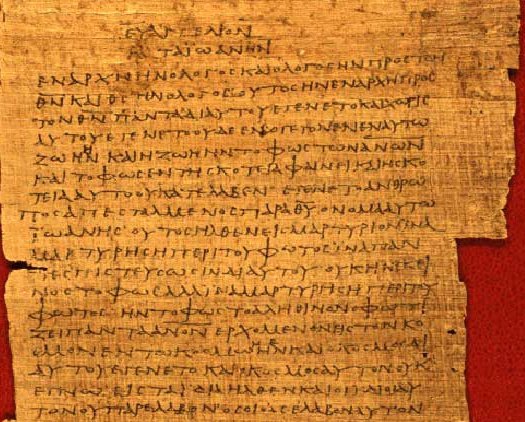 ΕΥΑΓΓΕΛΙΟΝ
ΤΑΙΩΑΝΗΝ
ΕΝΑΡΧΗΗΝΟΛΟΓΟΣΚΑΙΟΛΟΓΟΣΗΝΠΡΟΣΤΟΝ
ΘΝΚΑΙΘΣΗΝΟΛΟΓΟΣΟΥΤΟΣΗΝΕΝΑΡΧΗΠΡΟΣ
ΤΟΝΘΝΠΑΝΤΑΔΙΑΥΤΟΥΕΓΕΝΕΤΟΚΑΙΧΩΡΙΣ
ΑΥΤΟΥΕΓΕΝΕΤΟΟΥΔΕΝΟΓΕΓΟΝΕΝΕΝΑΥΤΩ
ΖΩΗΗΝΚΑΙΗΖΩΗΗΝΤΟΦΩΣΤΩΝΑΝΩΝ
ΚΑΙΤΟΦΩΣΕΝΤΗΣΚΟΤΕΙΑΦΑΙΝΕΙΚΑΙΗΣΚΟ
ΤΕΙΑΑΥΤΟΟΥΚΑΤΕΛΑΒΕΝ ΕΓΕΝΕΤΟΑΝΘΡΩ
ΠΟΣΑΠΕΣΤΑΛΜΕΝΟΣΠΑΡΑΘΥΟΝΟΜΑΑΥΤΩ
ΙΩΑΝΗΣ·ΟΥΤΟΣΗΛΘΕΝΕΙΣΜΑΡΤΥΡΙΑΝΙΝΑ
ΜΑΡΤΥΡΗΣΗΠΕΡΙΤΟΥΦΩΤΟΣΙΝΑΠΑΝ
ΤΕΣΠΙΣΤΕΥΣΩΣΙΝΔΙΑΥΤΟΥ·ΟΥΚΗΝΕΚΕΙ
ΝΟΣΤΟΦΩΣΑΛΛΙΝΑΜΑΡΤΥΡΗΣΗΠΕΡΙΤΟΥ
ΦΩΤΟΣ·ΗΝΤΟΦΩΣΤΟΑΛΗΘΙΝΟΝΟΦΩΤΙ
ΖΕΙΠΑΝΤΑΑΝΟΝ ΕΡΧΟΜΕΝΟΝΕΙΣΤΟΝΚΟ
ΣΜΟΝΕΝΤΩΚΟΣΜΩΗΝΚΑΙΟΚΟΣΜΟΣΔΙ
ΑΥΤΟΥΕΓΕΝΕΤΟΚΑΙΟΚΟΣΜΟΣΑΥΤΟΝΟΥΚ
ΕΓΝΩ·ΕΙΣΤΑΙΔΙΑΗΛΘΕΝΚΑΙΟΙΙΔΙΟΙΑΥ
ΤΟΝΟΥΠΑΡΕΛΑΒΟΝΟΣΟΙΔΕΕΛΑΒΟΝΑΥΤΟΝ